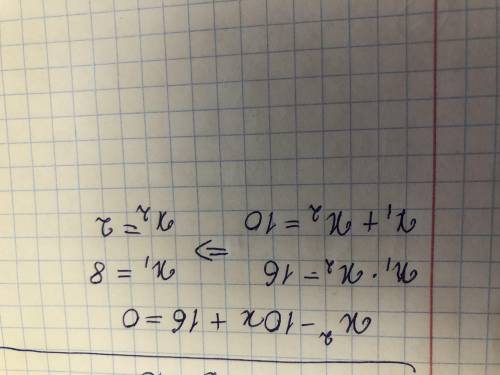 x² - 10x + 16 = 0
x₁ · x₂ = 16 => x₁ = 8
x₁ + x₂ = 10 x₂ = 2